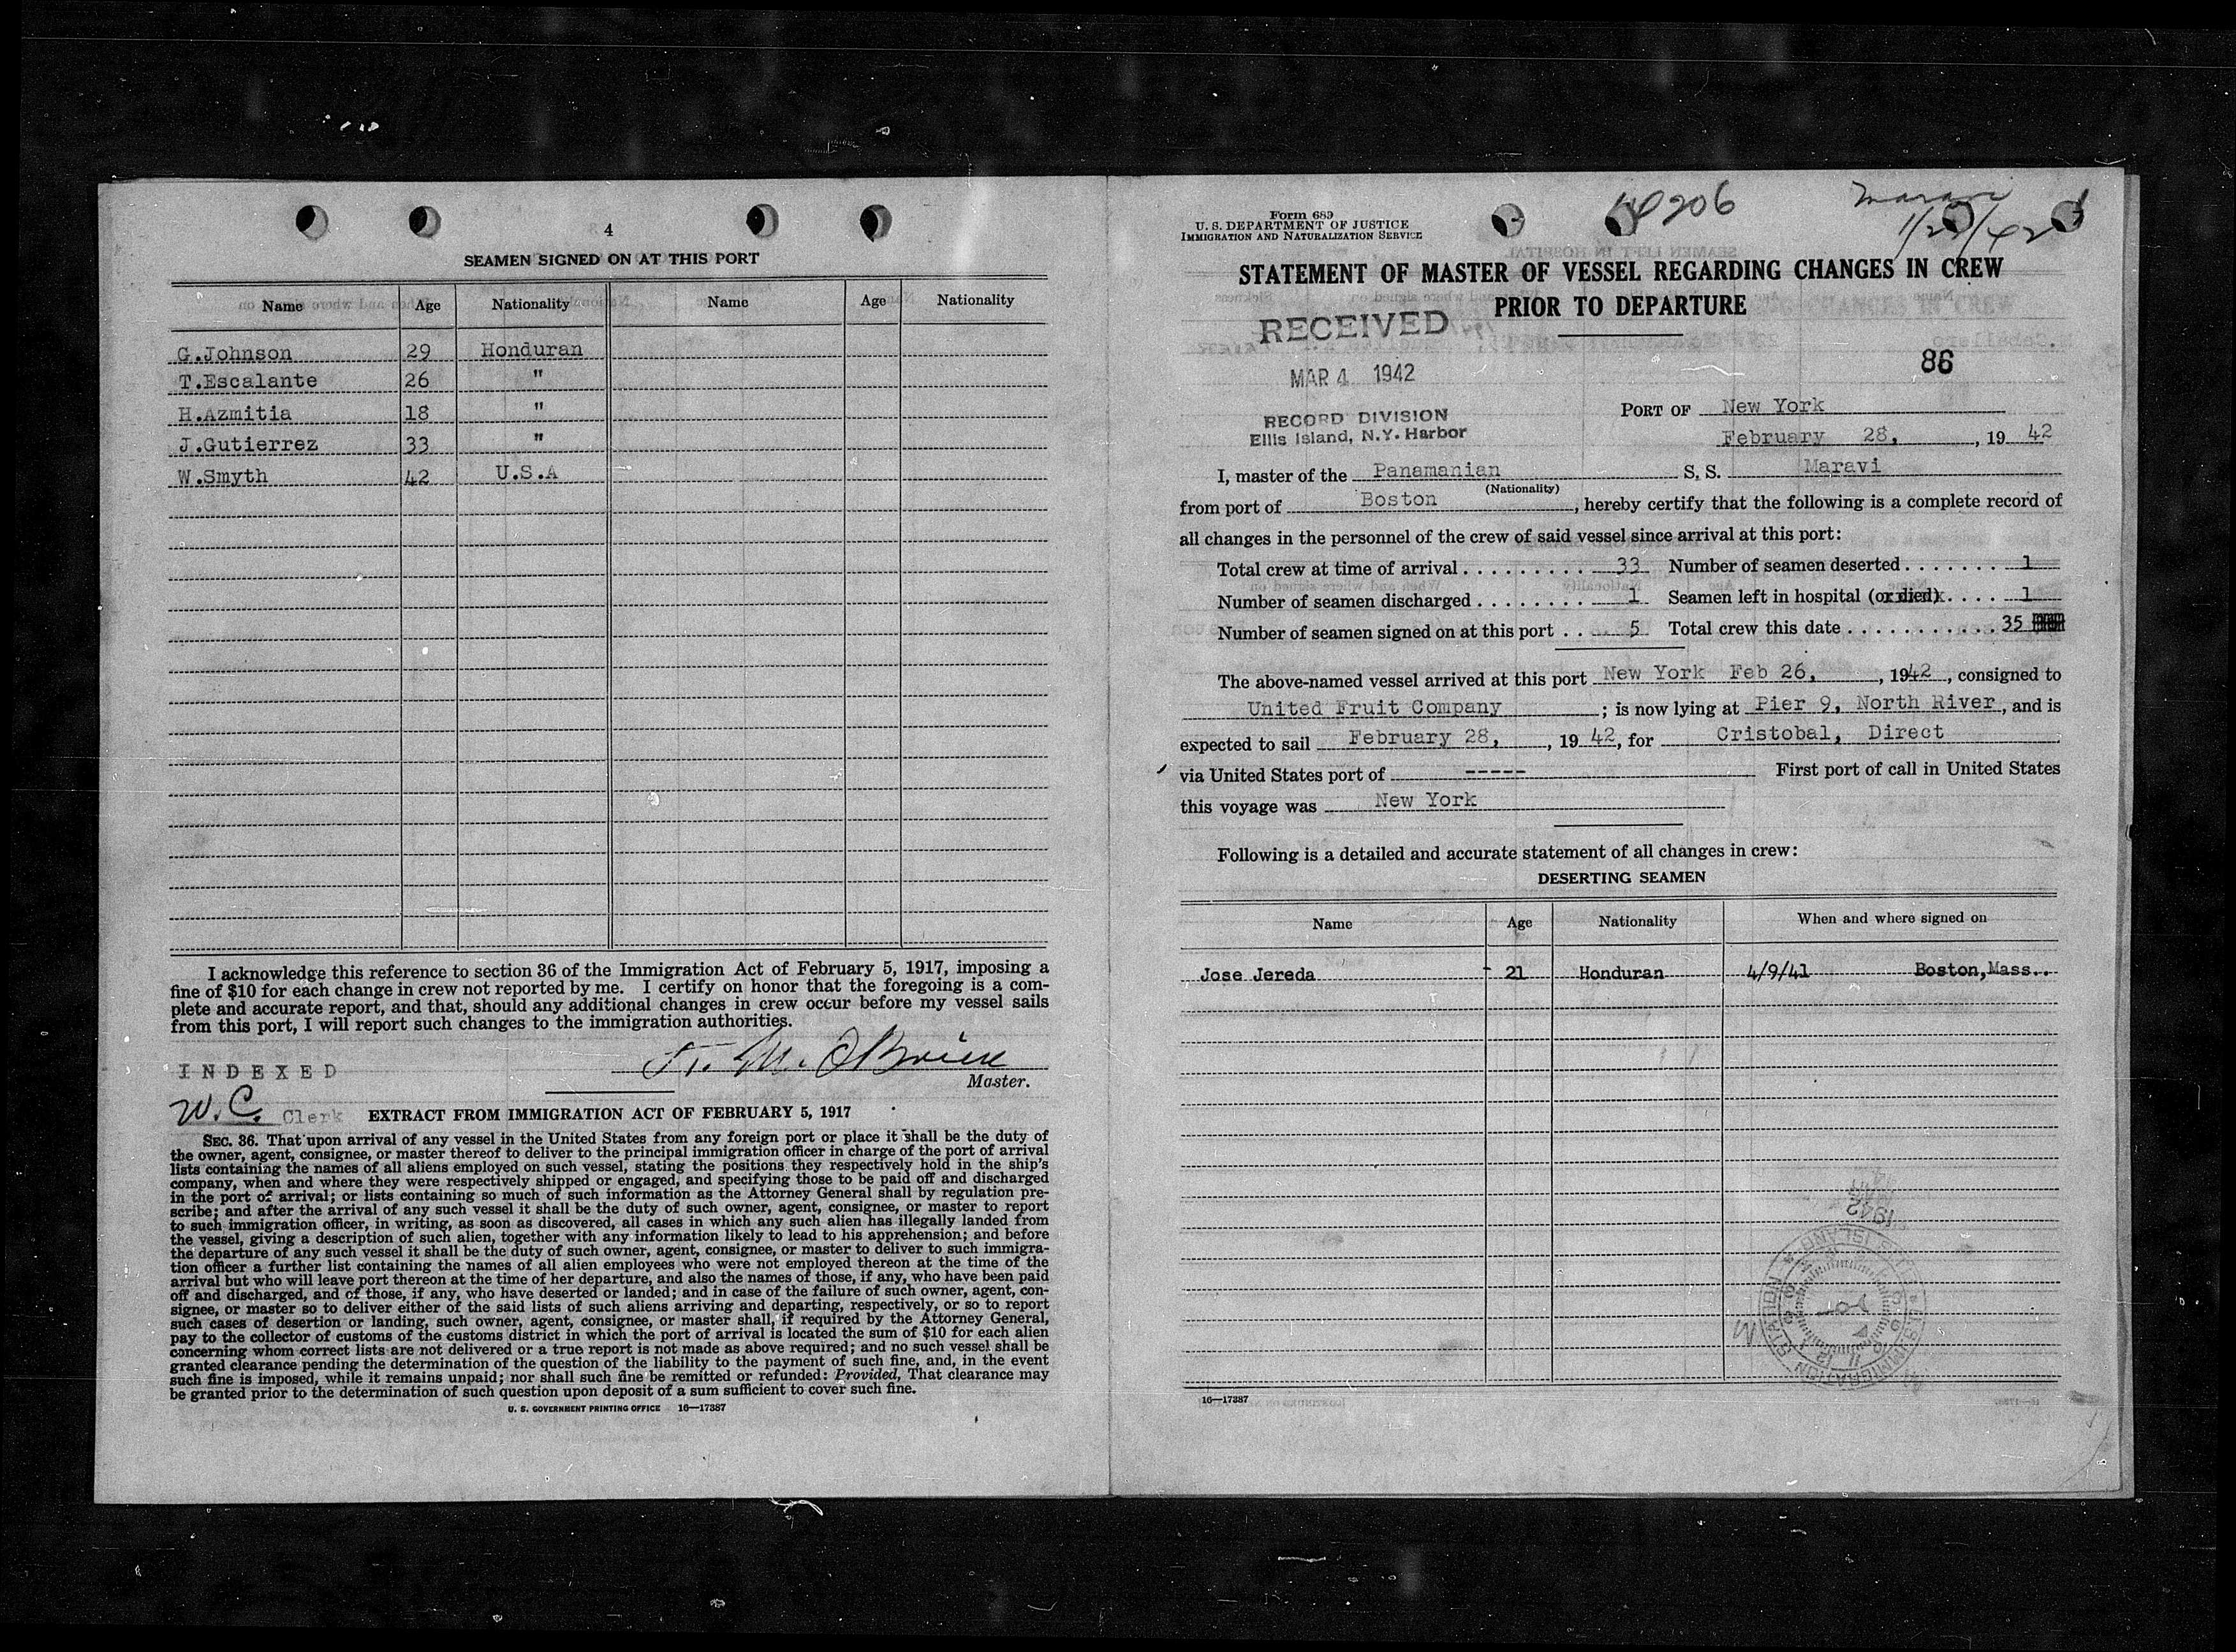 4
SEAMEN SIGNED ON AT THIS PORT
Name Age Nationality Name Age Nationality
G.Johnson 29 Honduran
T.Escalante 26 "
H.Azmitia 18 "
J.Gutierrez 33 "
W.Smyth 42 U.S.A
I acknowledge this reference to section 36 of the Immigration Act of February 5, 1917, imposing a
fine of $10 for each change in crew not reported by me. I certify on honor that the foregoing is a com-
plete and accurate report, and that, should any additional changes in crew occur before my vessel sails
from this port, I will report such changes to the immigration authorities.
M. OBrien
INDEXED
Master.
W.C. Clerk
EXTRACT FROM IMMIGRATION ACT OF FEBRUARY 5, 1917
SEC. 36. That upon arrival of any vessel in the United States from any foreign port or place it shall be the duty of
the owner, agent, consignee, or master thereof to deliver to the principal immigration officer in charge of the port of arrival
lists containing the names of all aliens employed on such vessel, stating the positions they respectively hold in the ship's
company, when and where they were respectively shipped or engaged, and specifying those to be paid off and discharged
in the port of arrival; or lists containing so much of such information as the Attorney General shall by regulation pre-
scribe; and after the arrival of any such vessel it shall be the duty of such owner, agent, consignee, or master to report
to such immigration officer, in writing, as soon as discovered, all cases in which any such alien has illegally landed from
the vessel, giving a description of such alien, together with any information likely to lead to his apprehension; and before
the departure of any such vessel it shall be the duty of such owner, agent, consignee, or master to deliver to such immigra-
tion officer a further list containing the names of all alien employees who were not employed thereon at the time of the
arrival but who will leave port thereon at the time of her departure, and also the names of those, if any, who have been paid
off and discharged, and of those, if any, who have deserted or landed; and in case of the failure of such owner, agent, con-
signee, or master so to deliver either of the said lists of such aliens arriving and departing, respectively, or so to report
such cases of desertion or landing, such owner, agent, consignee, or master shall, if required by the Attorney General,
pay to the collector of customs of the customs district in which the port of arrival is located the sum of $10 for each alien
concerning whom correct lists are not delivered or a true report is not made as above required; and no such vessel shall be
granted clearance pending the determination of the question of the liability to the payment of such fine, and, in the event
such fine is imposed, while it remains unpaid; nor shall such fine be remitted or refunded: Provided, That clearance may
be granted prior to the determination of such question upon deposit of a sum sufficient to cover such fine.
U. S. GOVERNMENT PRINTING OFFICE 16—17387
Form 689
U. S. DEPARTMENT OF JUSTICE
IMMIGRATION AND NATURALIZATION SERVICE
Maravi
STATEMENT OF MASTER OF VESSEL REGARDING CHANGES IN CREW
PRIOR TO DEPARTURE
RECEIVED
MAR 4 1942
RECORD DIVISION
Ellis Island, N.Y. Harbor
86
PORT OF New York
February 28, , 19 42
I, master of the Panamanian S. S. Maravi
(Nationality)
from port of Boston , hereby certify that the following is a complete record of
all changes in the personnel of the crew of said vessel since arrival at this port:
Total crew at time of arrival . . . . . . . . . . 33 Number of seamen deserted . . . . . . . 1
Number of seamen discharged . . . . . . . . 1 Seamen left in hospital (or died) . . . . 1
Number of seamen signed on at this port . . 5 Total crew this date . . . . . . . . . . . 35
The above-named vessel arrived at this port New York Feb 26, , 1942 , consigned to
United Fruit Company ; is now lying at Pier 9, North River , and is
expected to sail February 28, , 19 42, for Cristobal, Direct
via United States port of ----- First port of call in United States
this voyage was New York
Following is a detailed and accurate statement of all changes in crew:
DESERTING SEAMEN
Name Age Nationality When and where signed on
Jose Jereda - 21 Honduran 4/9/41 Boston,Mass..
16—17387